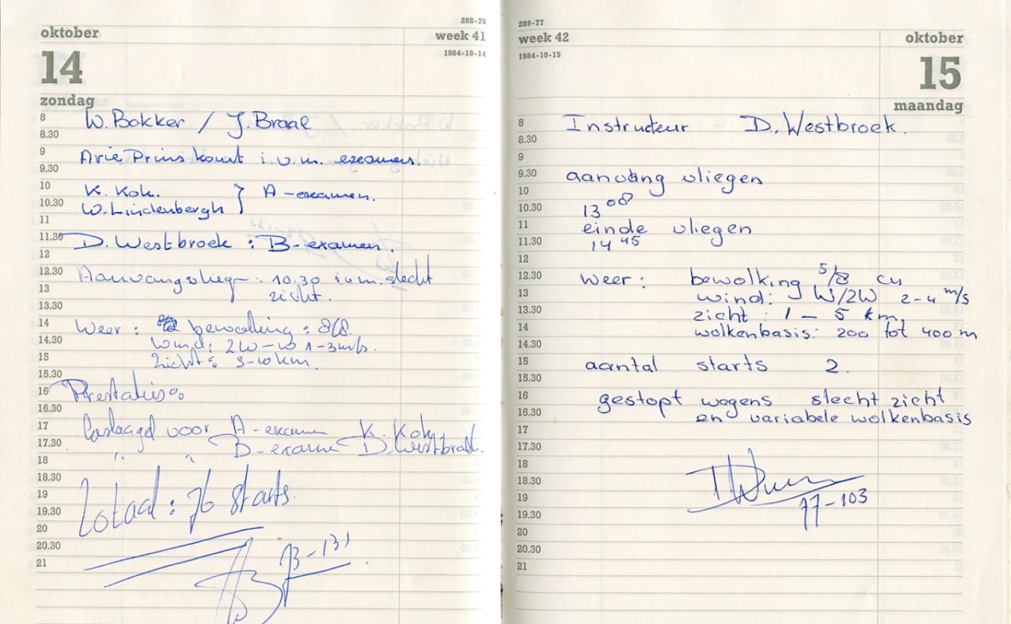 oktober
288-78
week 41
1984-10-14
14
zondag
8
8.30
9
9.30
10
10.30
11
11.30
12
12.30
13
13.30
14
14.30
15
15.30
16
16.30
17
17.30
18
18.30
19
19.30
20
20.30
21
W. Bakker / J. Braal
Arie Prins komt i.v.m. examens.
K. Kok. } A-examen.
W. Lindenbergh
D. Westbroek : B-examen.
Aanvangsvlieg : 10.30 i.v.m. slecht
zicht.
Weer : bewolking : 8/8.
Wind : ZW-W 1-3 m/s.
Zicht : 3-10 km.
Prestaties :
Geslaagd voor A-examen K. Kok
" " B-examen D. Westbroek.
Totaal : 76 starts.
289-77
week 42
1984-10-15
oktober
15
maandag
8
8.30
9
9.30
10
10.30
11
11.30
12
12.30
13
13.30
14
14.30
15
15.30
16
16.30
17
17.30
18
18.30
19
19.30
20
20.30
21
Instructeur D. Westbroek.
aanvang vliegen
13 00
einde vliegen
14 45
weer : bewolking 5/8 cu
wind : W/ZW 2-4 m/s
zicht : 1 - 5 km
wolkenbasis : 200 tot 400 m
aantal starts 2.
gestopt wegens slecht zicht
en variabele wolkenbasis
77-103